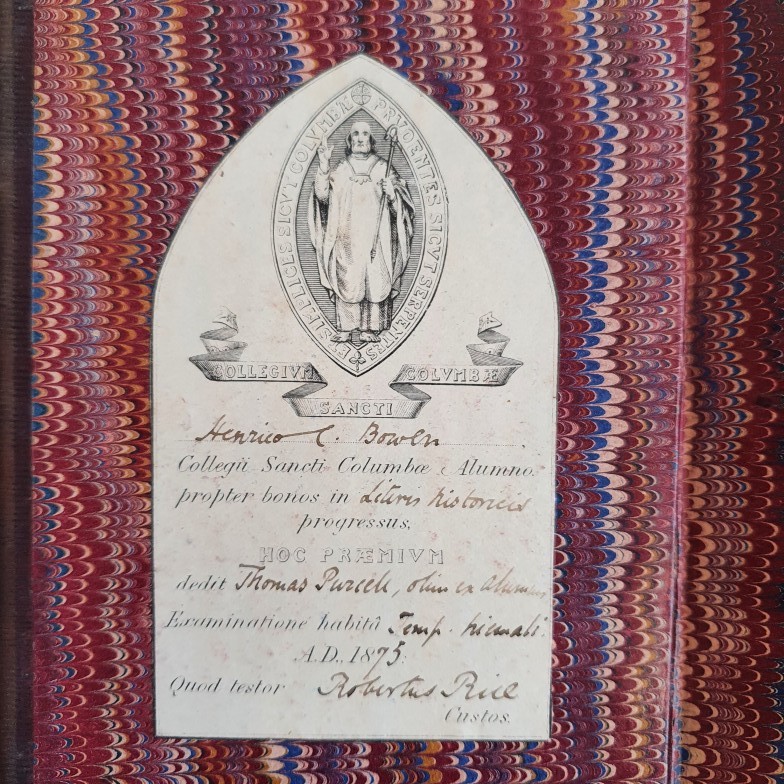 PRVDENTES SICVT SERPENTES
ET SIMPLICES SICVT COLVMBÆ
COLLEGIVM SANCTI COLVMBÆ
Henrico C. Bowen
Collegii Sancti Columbæ Alumno,
propter bonos in Literis Historicis
progressus,
HOC PRÆMIVM
dedit Thomas Purcell, olim ex Alumnis
Examinatione habitâ Temp. hiemali
A.D. 1875.
Quod testor Robertus Rice
Custos.